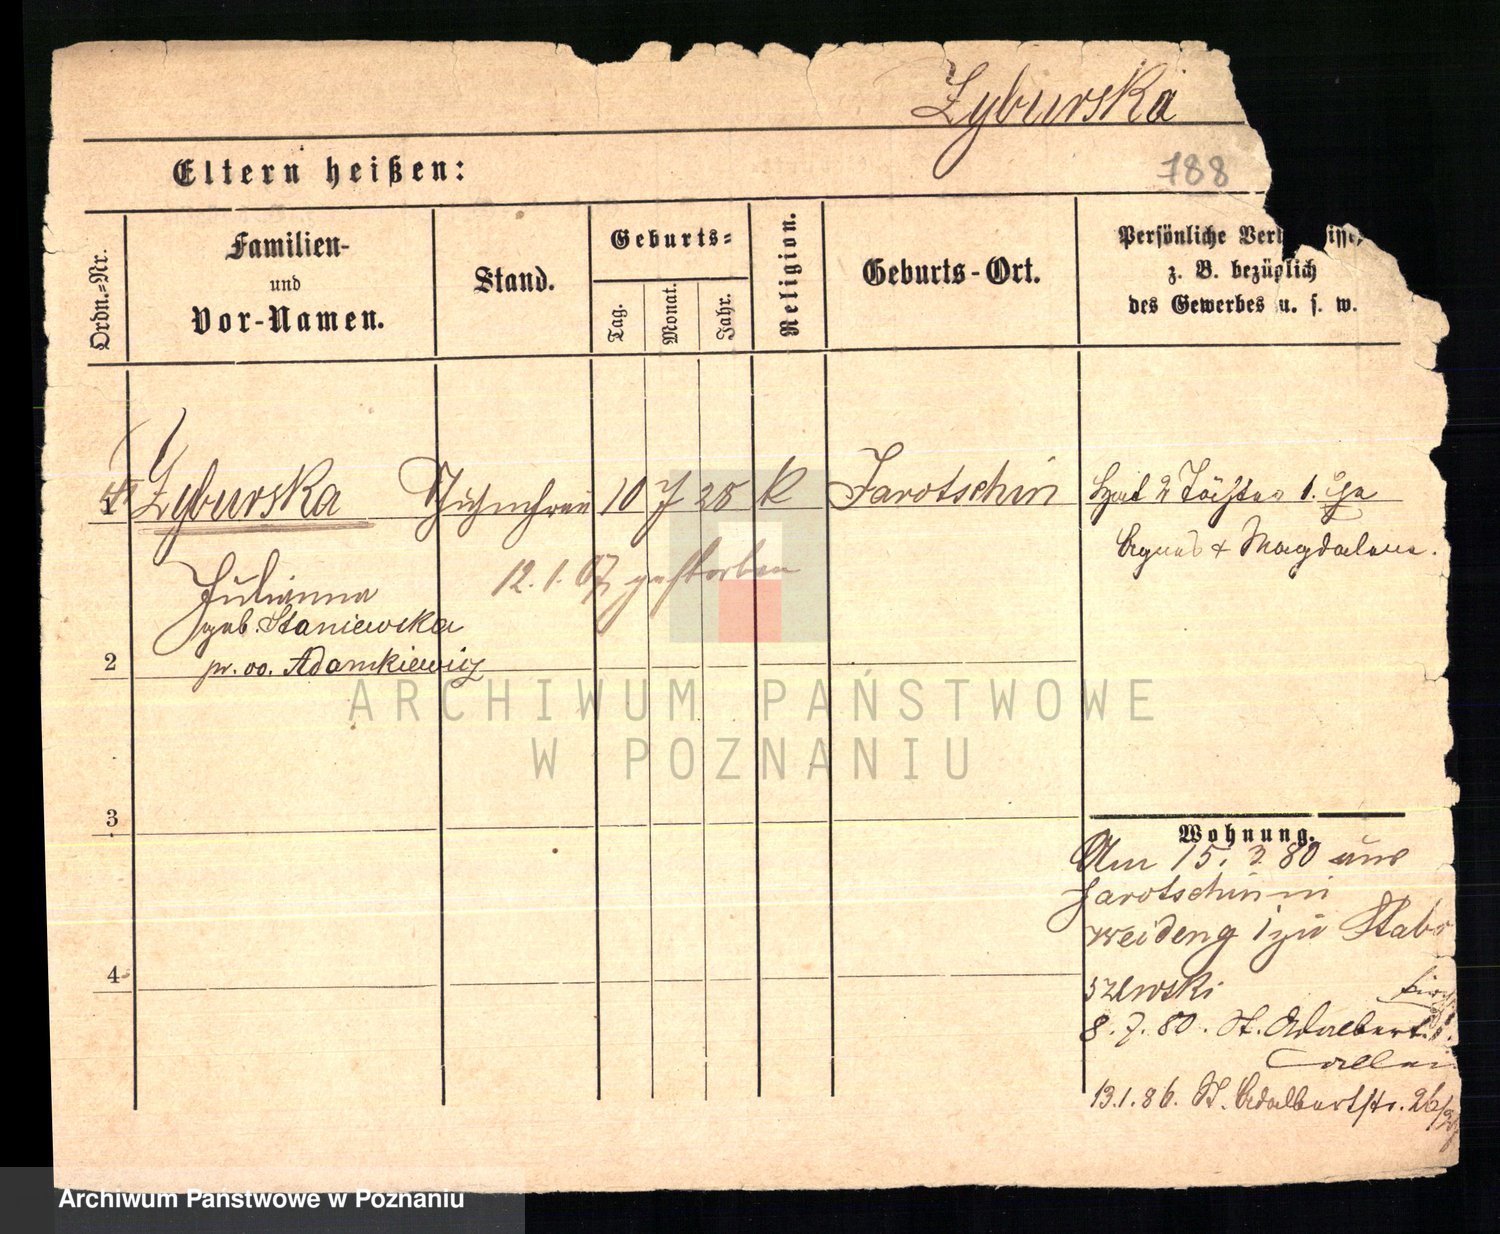 Zyburska
788
Eltern heißen:
Ordn.-Nr.
Familien-
und
Vor-Namen.
Stand.
Geburts-
Tag.
Monat.
Jahr.
Religion.
Geburts-Ort.
Persönliche Ver
z. B. bezüglich
des Gewerbes u. s. w.
1 Zyburska 10 7 25 k Jarotschin Hat 2 Töchter 1. Ehe
Agnes + Magdalena.
12. 1. 07 gestorben
Julianna
geb. Staniewska
pr. vo. Adamkiewicz
2
3
4
Wohnung.
Am 15. 2 80 aus
Jarotschin ni
weideng 1 zu Stabr
szewski
8. 7. 80. St. Adalbert.
13.1.86. St. Adalbertstr. 26/27
ARCHIWUM PAŃSTWOWE
W POZNANIU
Archiwum Państwowe w Poznaniu